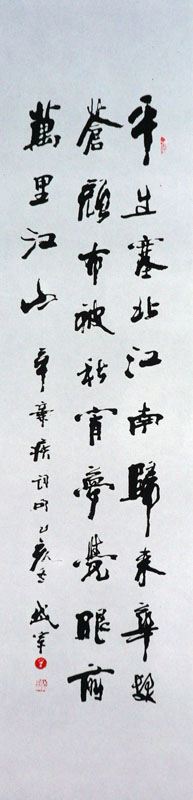 平生塞北江南歸来華髮
蒼顏布被秋宵夢覺眼前
萬里江山 辛棄疾詞句乙亥冬 成军